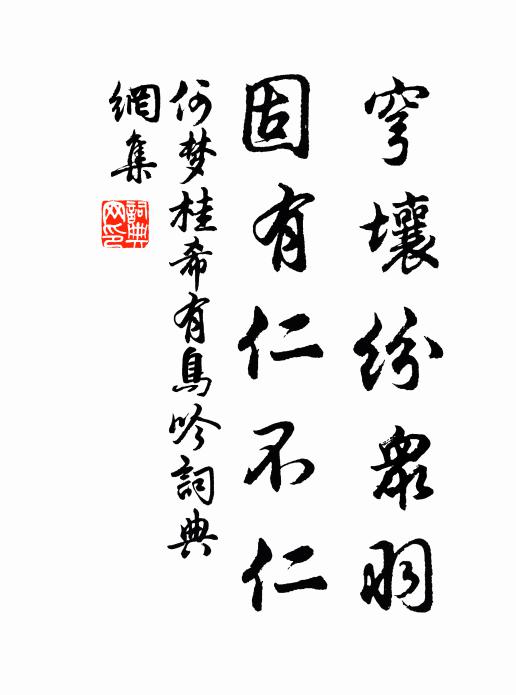 穹壤紛衆羽
固有仁不仁
何梦桂希有鳥吟詞典
網集
詞典
网印